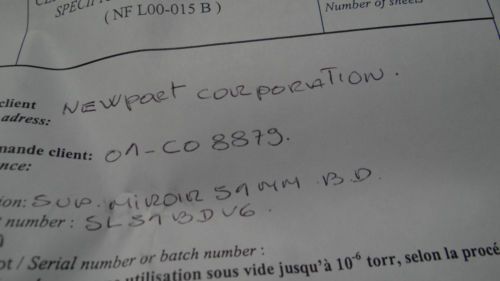 SPECIF
( NF L00-015 B )
Number of sheets
client
NEWPORT CORPORATION.
adress:
mande client: 01-CO 8879.
nce:
ion: SUP. MIROIR 51 MM B.D.
number : SL51BDV6.
ot / Serial number or batch number :
utilisation sous vide jusqu'à 10-6 torr, selon la procé